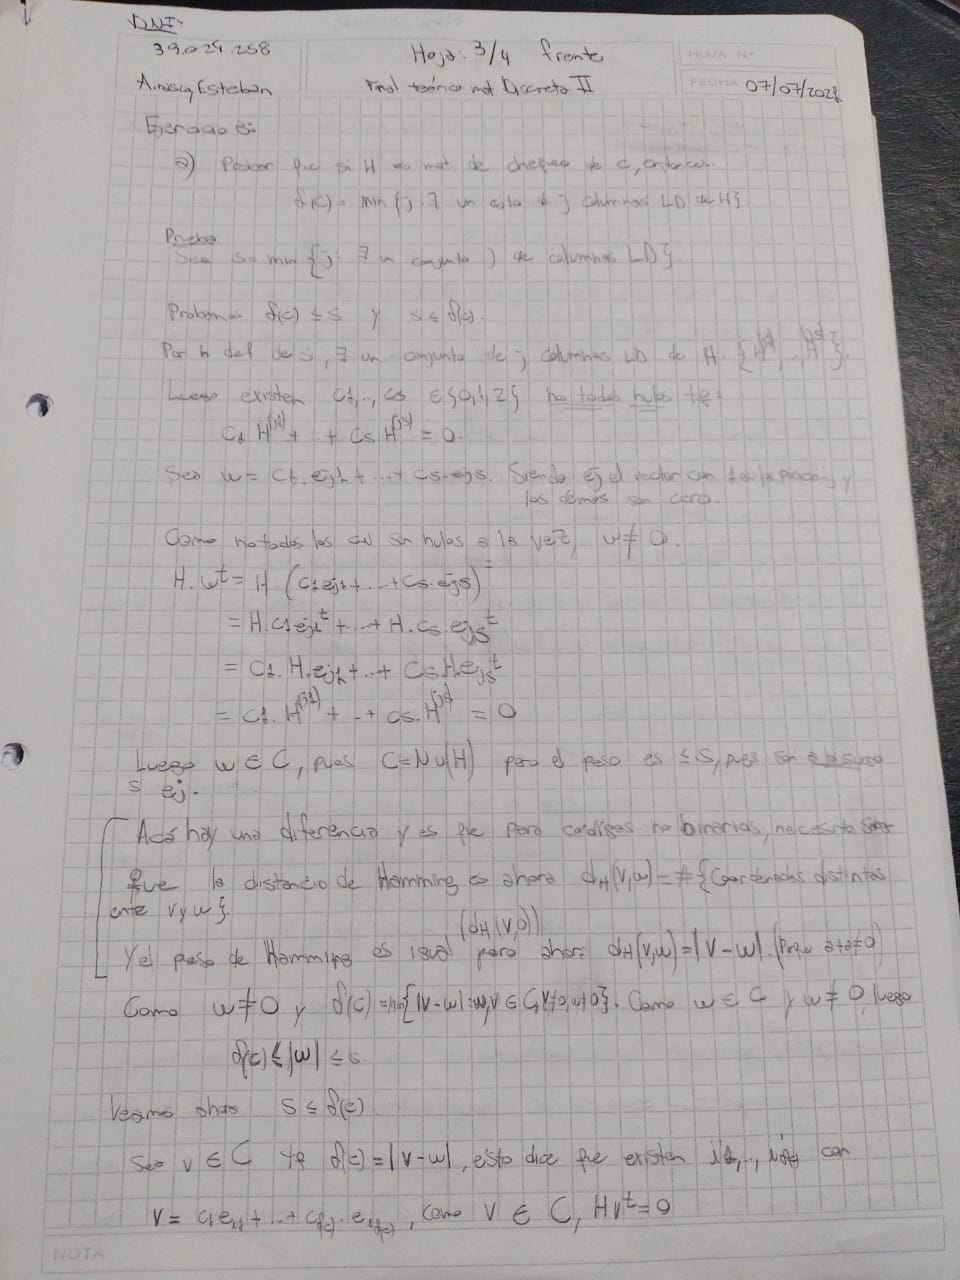 DNI:
39.024.258
Hoja: 3/4 frente
HOJA N°
Esteban
Final teórico mat Discreta II
FECHA 07/07/2021
Ejercicio 8:
a) Probar que si H es mat. de chequeo de C, entonces:
δ(C) = min {j: ∃ un cjto de j columnas LD de H}
Prueba
Sea s = min {j: ∃ un conjunto j de columnas LD}.
Probamos δ(C) ≤ s y s ≤ δ(C).
Por la def de s, ∃ un conjunto de j columnas LD de H. {H^(j1), ..., H^(js)}.
Luego existen C1,..,Cs ∈ {0,1,2} no todos nulos tq:
C1 H^(j1) + .. + Cs H^(js) = 0.
Sea w = C1.ej1 + ...+ Cs.ejs. Siendo ej el vector con 1 en la posición j y
los demás son cero.
Como no todos los cj son nulos a la vez, w ≠ 0.
H.w^t = H.(C1ej1+...+Cs.ejs)^t
= H.C1ej1^t+...+ H.Cs.ejs^t
= C1.H.ej1^t+...+ CsH.ejs^t
= C1.H^(j1) + ..+ Cs.H^(js) = 0
Luego w ∈ C, pues C=Nu(H) pero el peso es ≤ s, pues son a lo sumo
s ej.
Acá hay una diferencia y es que para códigos no binarios, necesito
que la distancia de Hamming es ahora dH(v,w) = #{Coordenadas distintas
entre v y w}.
(dH(v,0))
Y el peso de Hamming es igual pero ahora dH(v,w) = |v-w|. (Porque a+a≠0)
Como w≠0 y δ(C)=min{|v-w|: w,v ∈ C, v≠0, w≠0}. Como w ∈ C y w ≠ 0, luego
δ(C) ≤ |w| ≤ s.
Veamos ahora s ≤ δ(C)
Sea v ∈ C tq δ(C) = |v-w|, esto dice que existen i1,..,iδ(C) con
v = c1ei1 + ..+ cδ(C).eiδ(C), como v ∈ C, Hv^t=0
NOTA